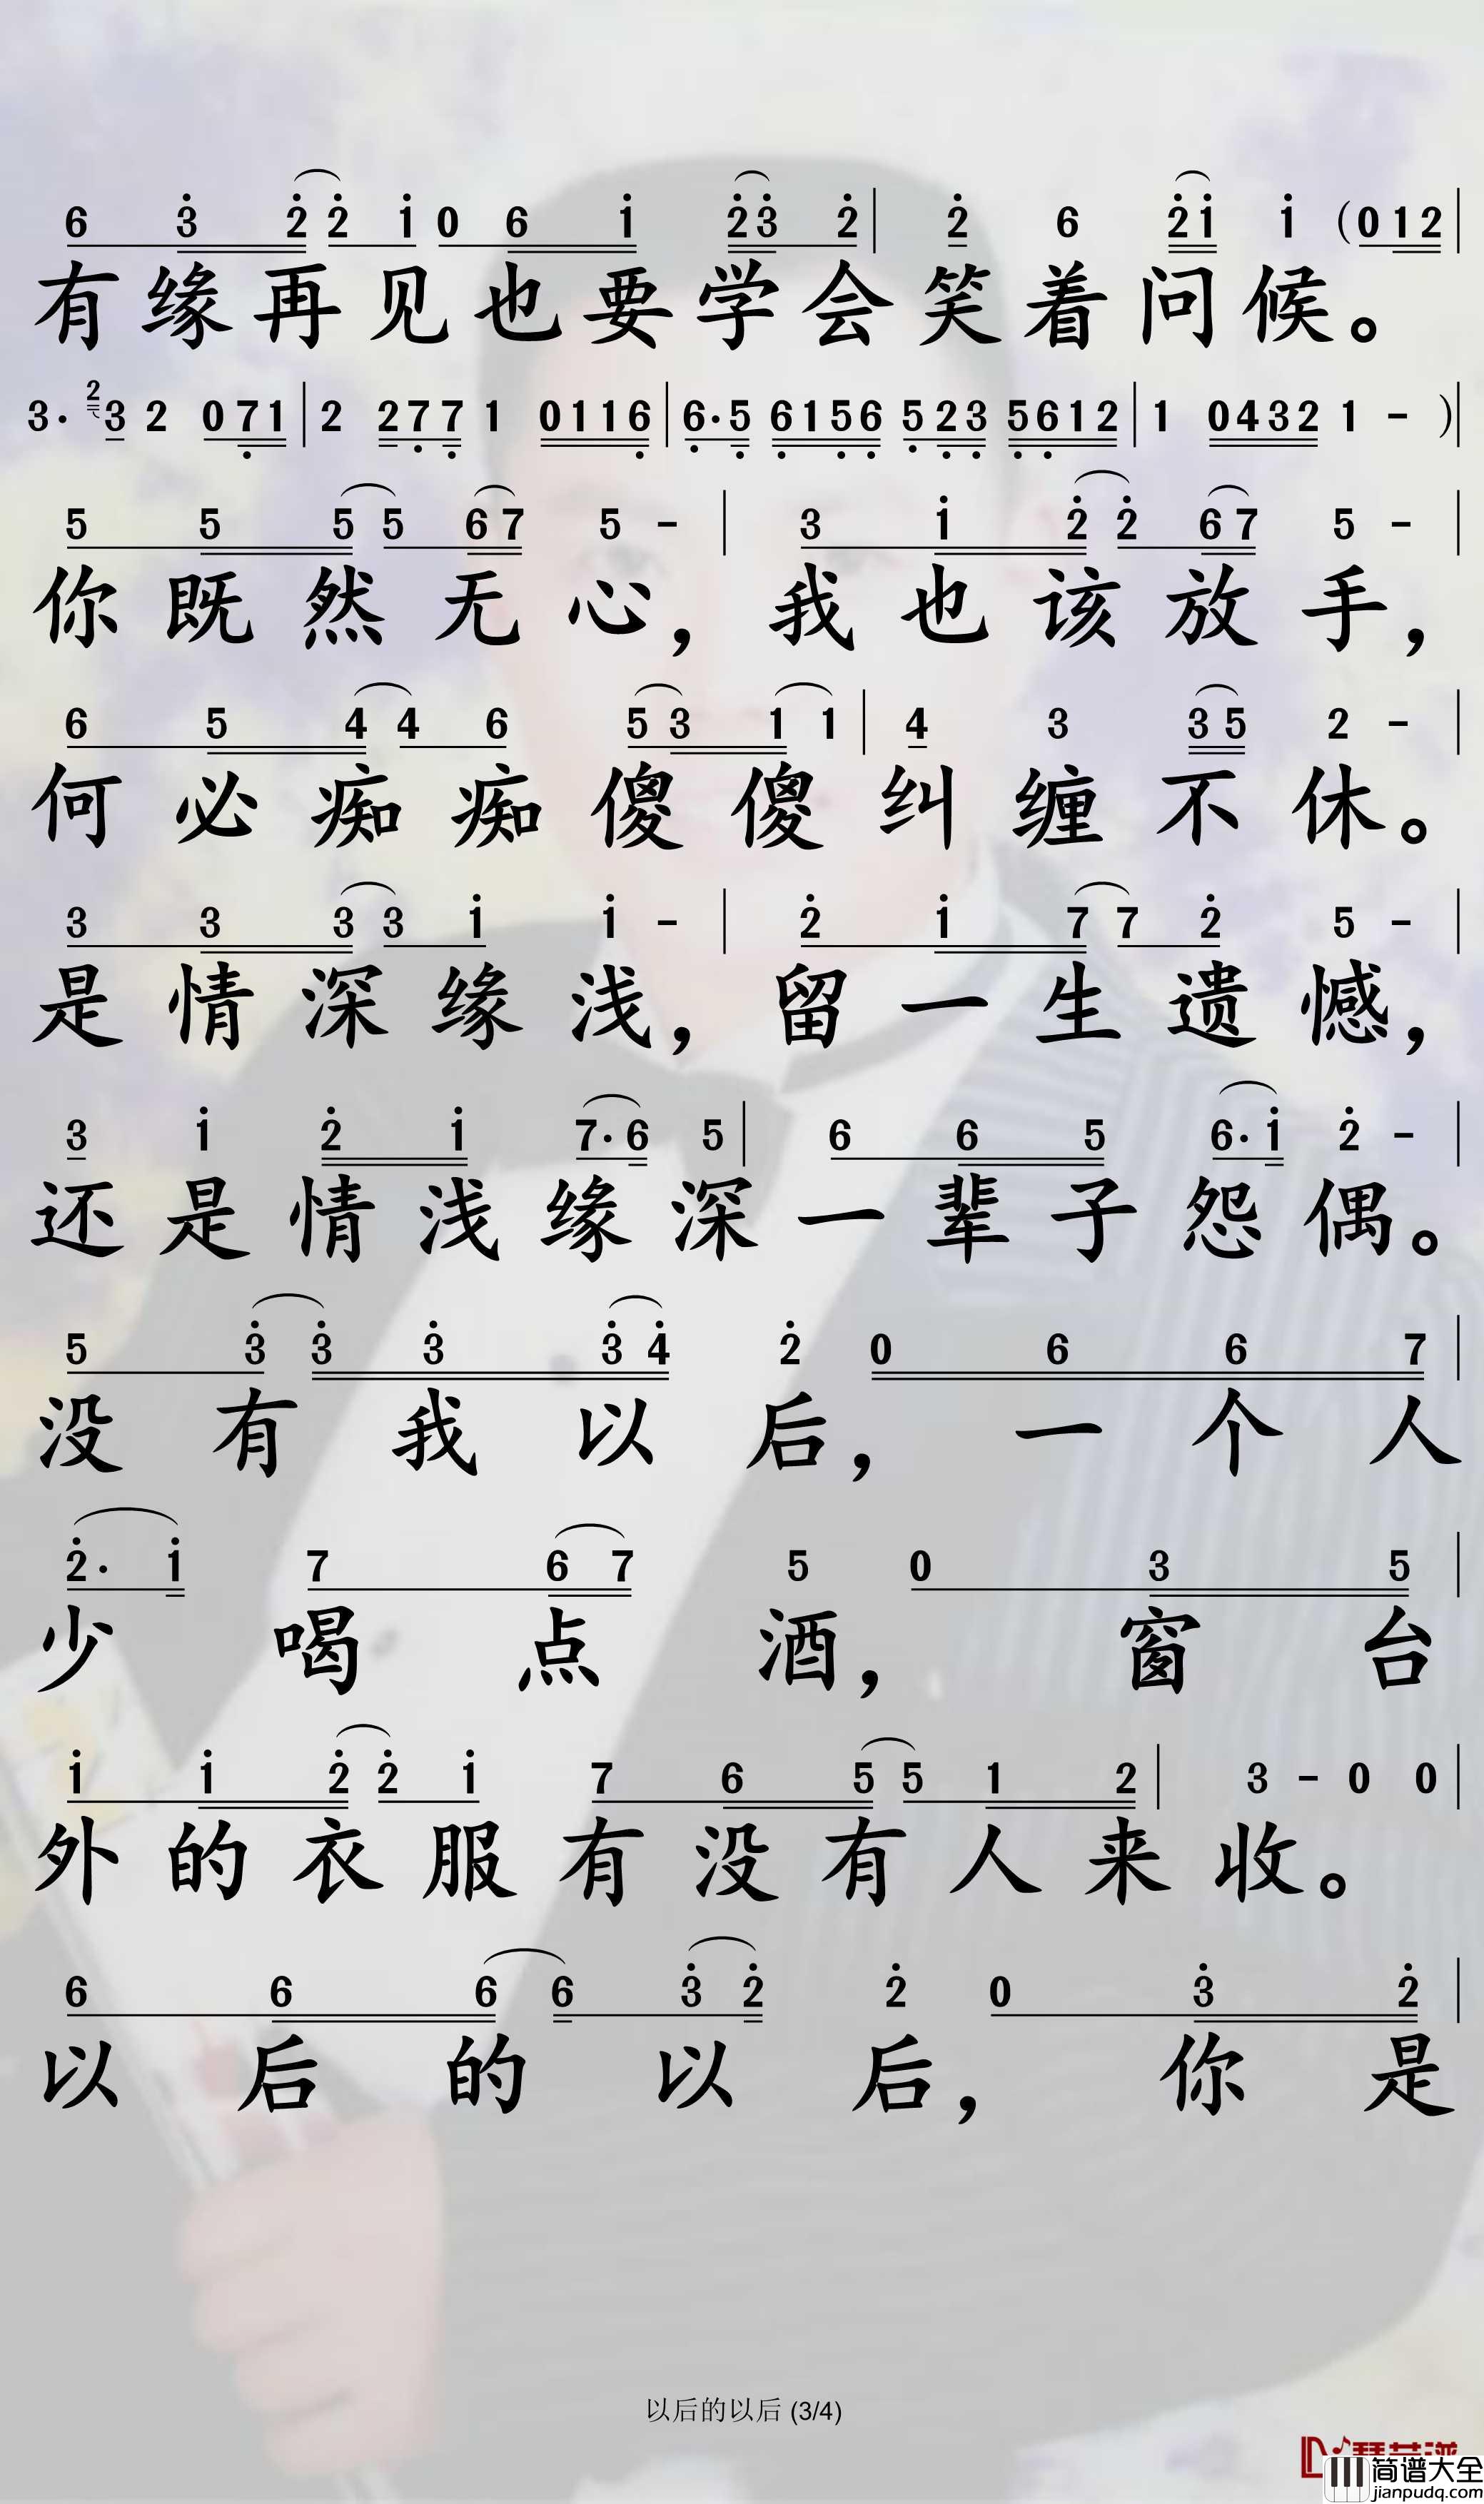 6 3 2 2 1 0 6 1 2 3 2 | 2 6 2 1 1 (0 1 2 |
有缘再见也要学会笑着问候。
3· 2 3 2 0 7 1 | 2 2 7 7 1 0 1 1 6 | 6· 5 6 1 5 6 5 2 3 5 6 1 2 | 1 0 4 3 2 1 - ) |
5 5 5 5 6 7 5 - | 3 1 2 2 6 7 5 - |
你既然无心，我也该放手，
6 5 4 4 6 5 3 1 1 | 4 3 3 5 2 - |
何必痴痴傻傻纠缠不休。
3 3 3 3 1 1 - | 2 1 7 7 2 5 - |
是情深缘浅，留一生遗憾，
3 1 2 1 7· 6 5 | 6 6 5 6· 1 2 - |
还是情浅缘深一辈子怨偶。
5 3 3 3 3 4 2 0 6 6 7 |
没有我以后，一个人
2· 1 7 6 7 5 0 3 5 |
少喝点酒，窗台
1 1 2 2 1 7 6 5 5 1 2 | 3 - 0 0 |
外的衣服有没有人来收。
6 6 6 6 3 2 2 0 3 2 |
以后的以后，你是
以后的以后 (3/4)
简谱大全
jianpudq.com